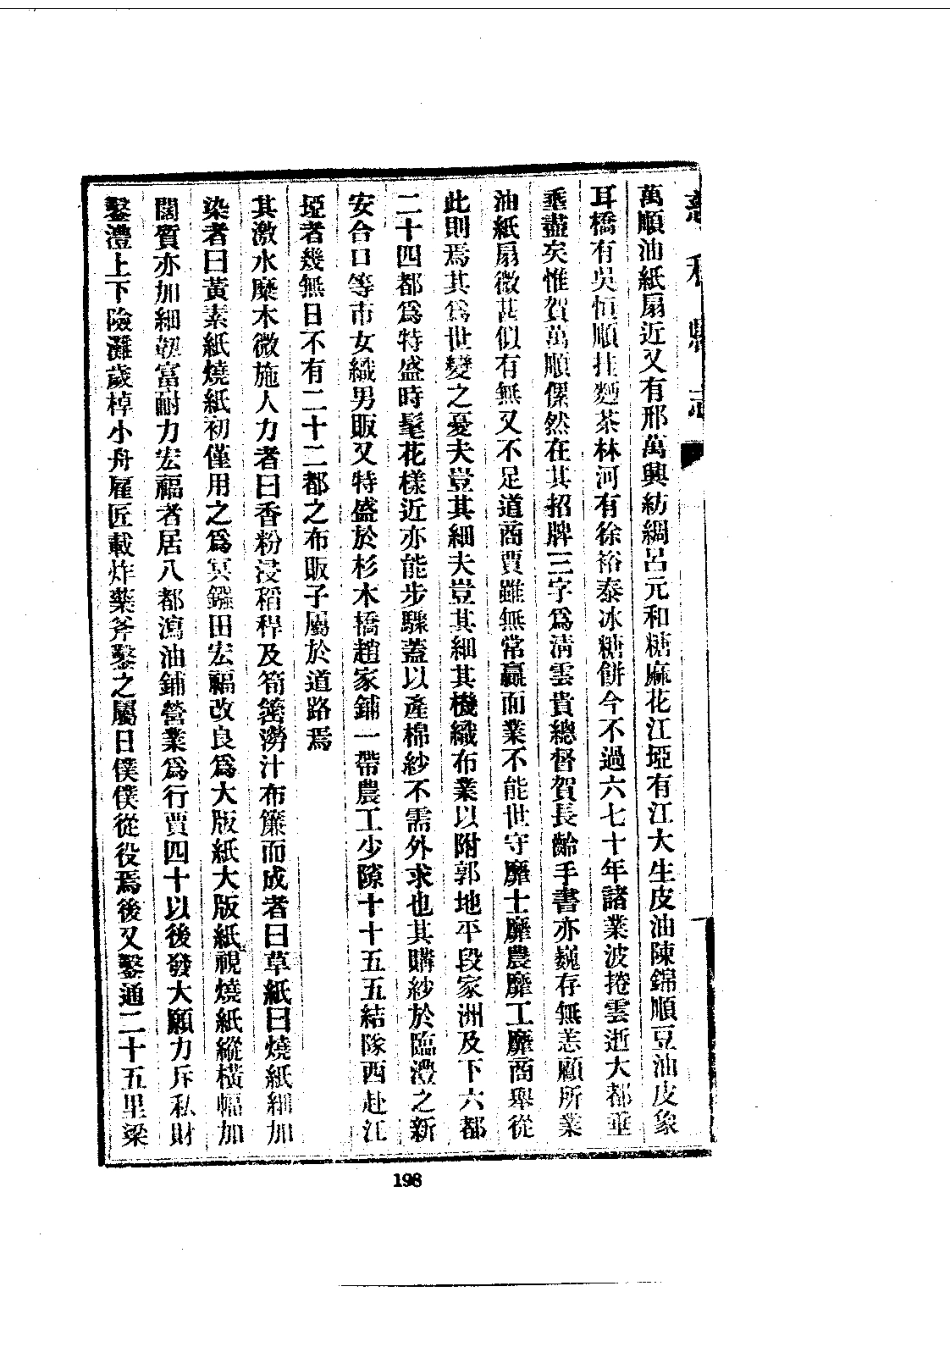 慈利縣志
萬順油紙扇近又有邢萬興紡綢呂元和糖麻花江埡有江大生皮油陳錦順豆油皮象
耳橋有吳恒順挂麪茶林河有徐裕泰冰糖餅今不過六七十年諸業波捲雲逝大都垂
垂盡矣惟賀萬順傫然在其招牌三字爲清雲貴總督賀長齡手書亦巍存無恙顧所業
油紙扇微甚似有無又不足道商賈雖無常贏面業不能世守靡士靡農靡工靡商舉從
此則焉其爲世變之憂夫豈其細夫豈其細其機織布業以附郭地平段家洲及下六都
二十四都爲特盛時髦花樣近亦能步驟蓋以產棉紗不需外求也其購紗於臨澧之新
安合口等市女織男販又特盛於杉木橋趙家鋪一帶農工少隙十十五五結隊西赴江
埡者幾無日不有二十二都之布販子屬於道路焉
其激水糜木微施人力者曰香粉浸稻稈及筍籜澇汁布簾而成者曰草紙曰燒紙細加
染者曰黃素紙燒紙初僅用之爲冥鏹田宏福改良爲大版紙大版紙視燒紙縱橫幅加
闊質亦加細韌富耐力宏福者居八都瀉油鋪營業爲行賈四十以後發大願力斥私財
鑿澧上下險灘歲棹小舟雇匠載炸藥斧鑿之屬日僕僕從役焉後又鑿通二十五里梁
198